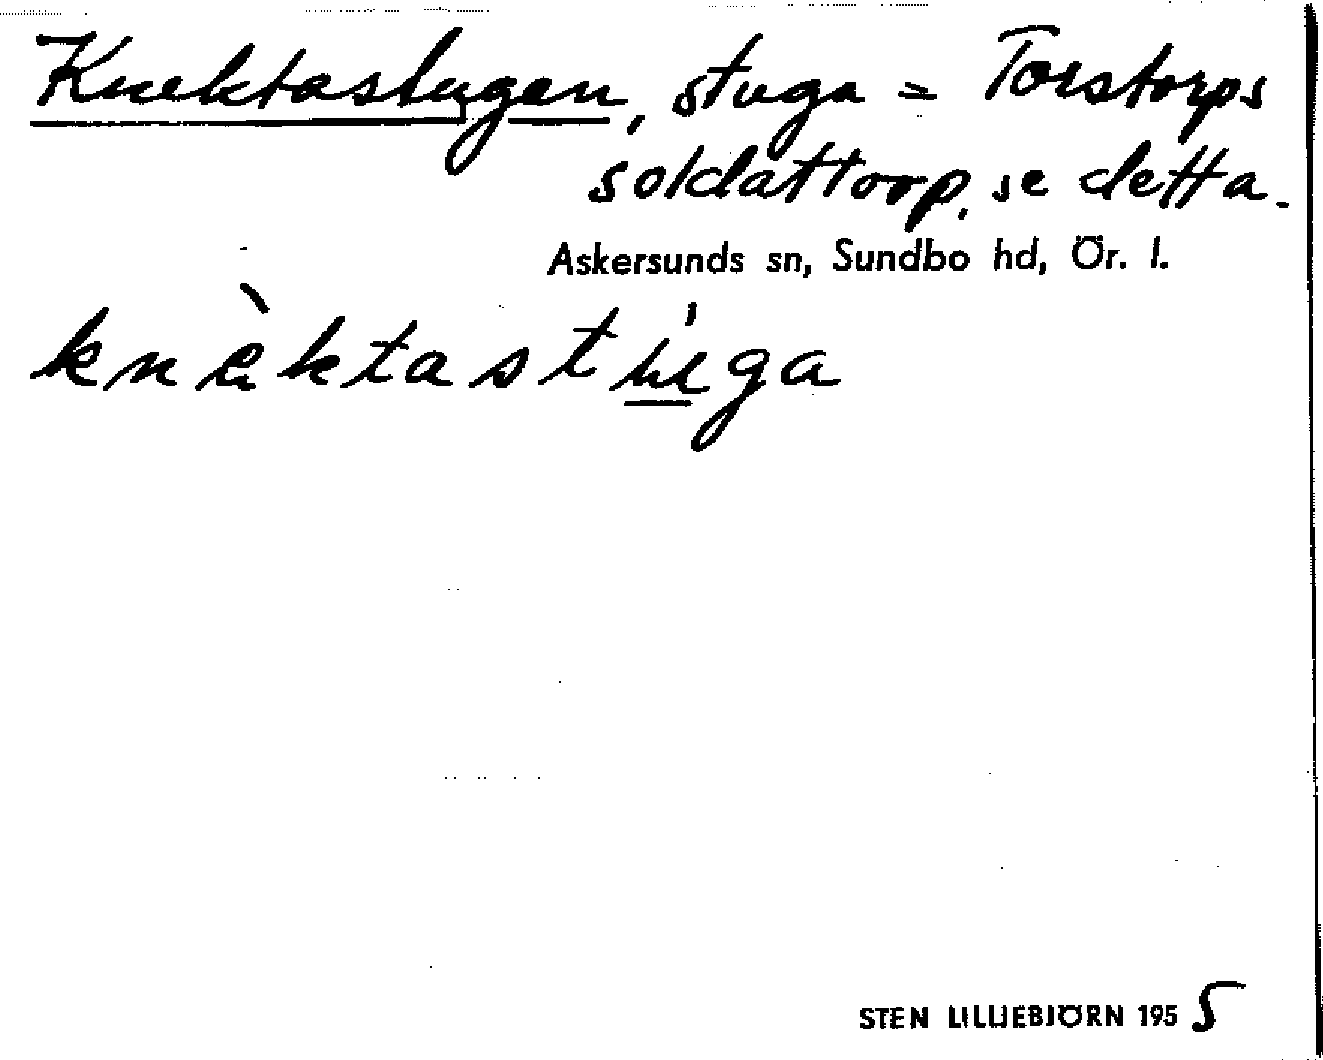 Knektastugan, stuga = Torstorps
soldattorp, se detta.
Askersunds sn, Sundbo hd, Ör. l.
knèktastúga
STEN LILLIEBJÖRN 1955